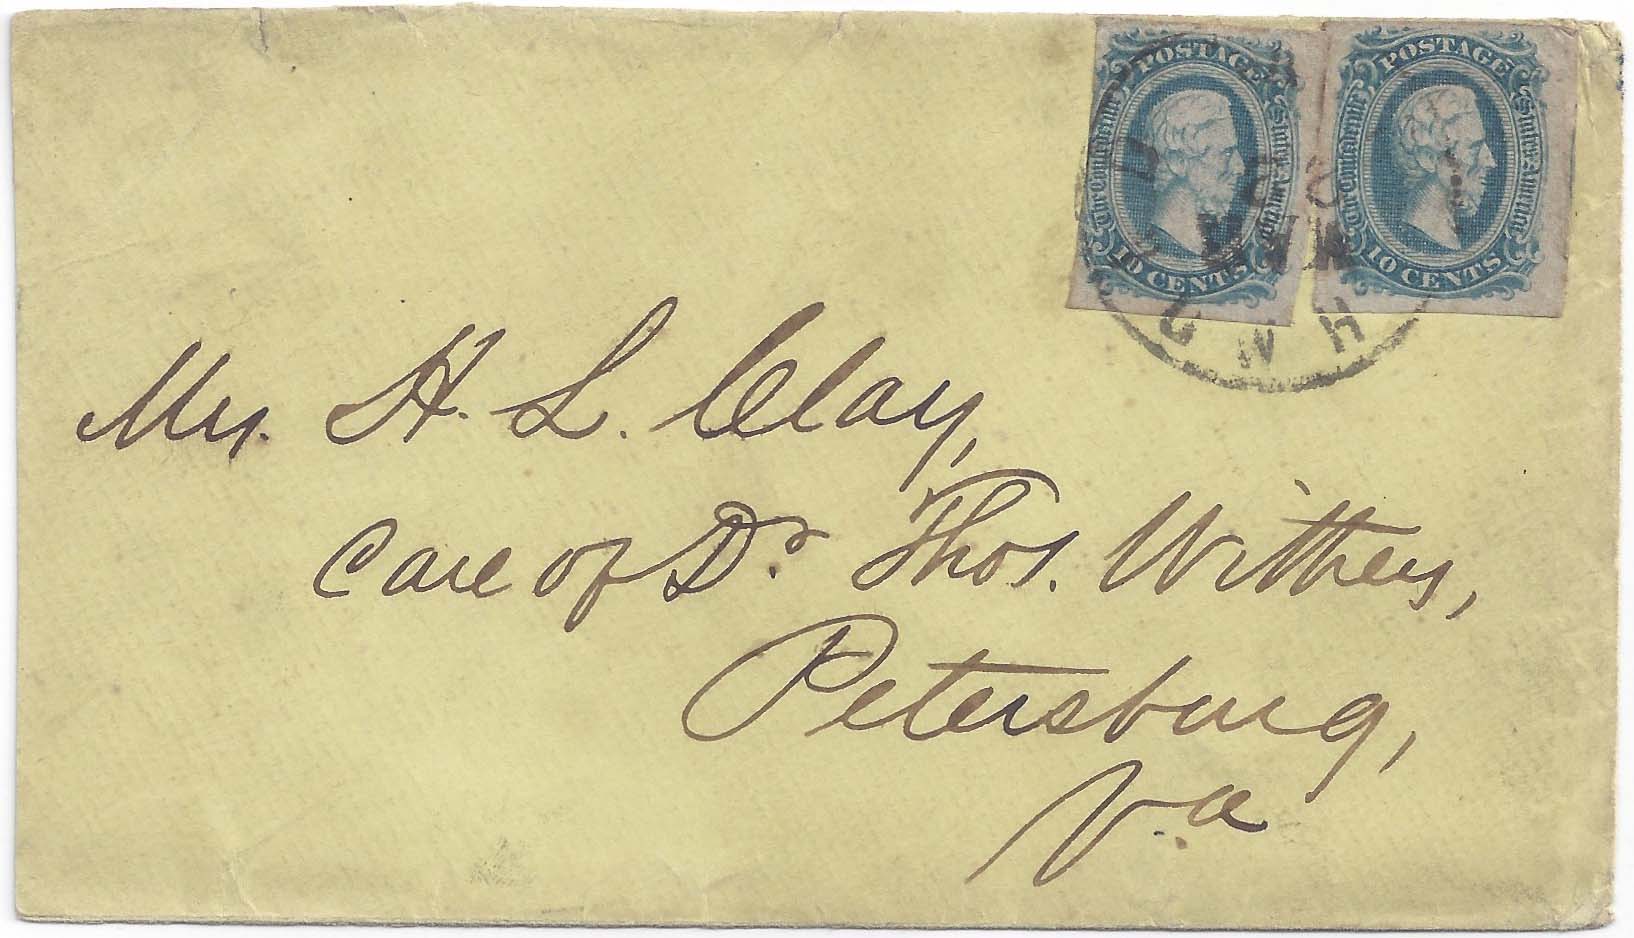 POSTAGE
The Confederate States of America
10 CENTS
POSTAGE
The Confederate States of America
10 CENTS
Mr. H. L. Clay,
Care of Dr. Thos. Withers,
Petersburg,
Va